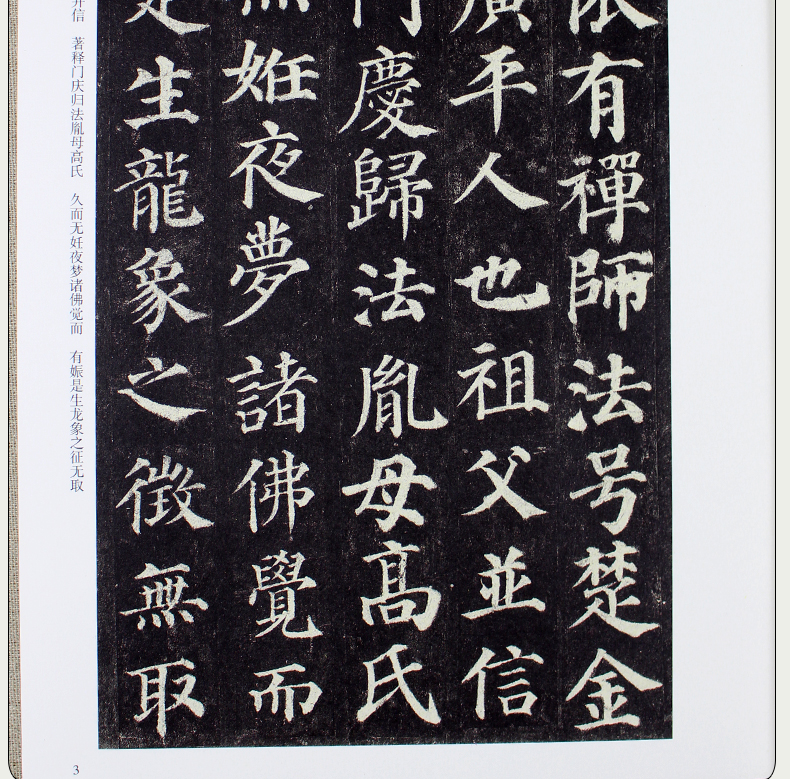 有禪師法号楚金
廣平人也祖父並信
門慶歸法胤母高氏
無妊夜夢諸佛覺而
是生龍象之徵無取
并信 著释门庆归法胤母高氏 久而无妊夜梦诸佛觉而 有娠是生龙象之征无取
3